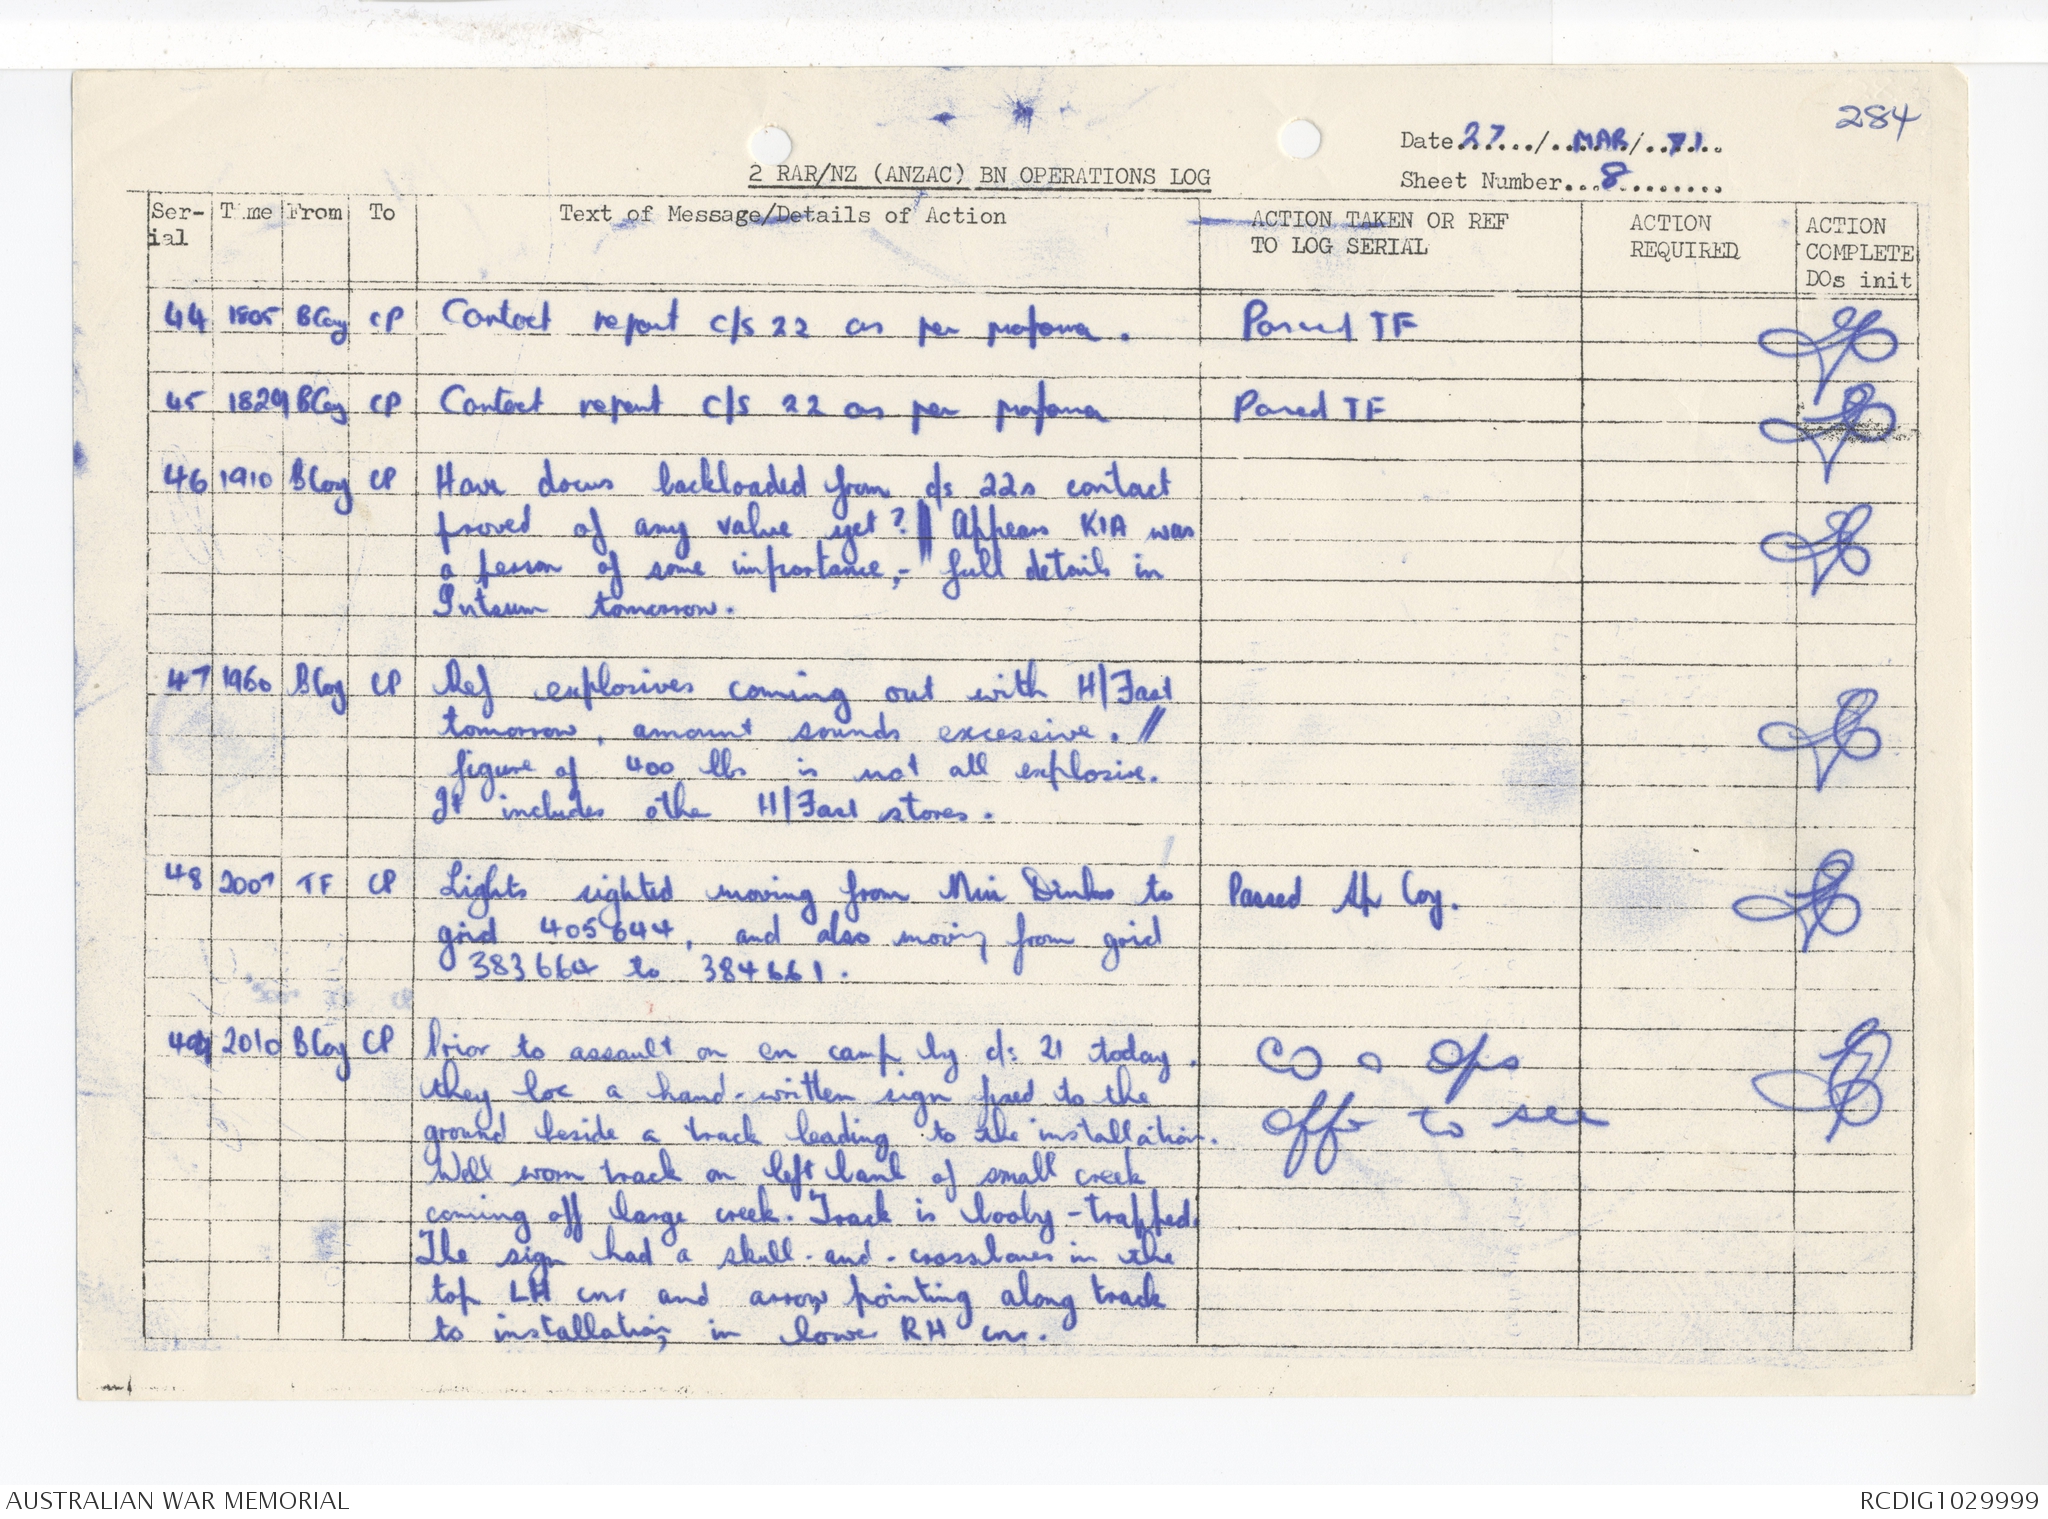 284
Date 27 / MAR / 71
Sheet Number 8
2 RAR/NZ (ANZAC) BN OPERATIONS LOG
Ser-ial Time From To Text of Message/Details of Action ACTION TAKEN OR REF TO LOG SERIAL ACTION REQUIRED ACTION COMPLETE DOs init
44 1805 BCoy CP Contact report c/s 22 as per proforma. Passed TF
45 1829 BCoy CP Contact report c/s 22 as per proforma Passed TF
46 1910 BCoy CP Have docus backloaded from c/s 22s contact
proved of any value yet? // Appears KIA was
a person of some importance,- full details in
Intsum tomorrow.
47 1960 BCoy CP Ref explosives coming out with H/Fast
tomorrow, amount sounds excessive. //
figure of 400 lbs is not all explosive.
It includes othe H/Fast stores.
48 2007 TF CP Lights sighted moving from Nui Dinh to Passed Sp Coy.
grid 405644, and also moving from grid
383664 to 384661.
49 2010 BCoy CP Prior to assault on en camp by c/s 21 today, CO & Ops
they loc a hand-written sign fixed to the
offr to see
ground beside a track leading to the installation.
Well worn track on left bank of small creek
coming off large creek. Track is booby-trapped.
The sign had a skull-and-crossbones in the
top LH cnr and arrow pointing along track
to installation in lower RH cnr.
AUSTRALIAN WAR MEMORIAL RCDIG1029999